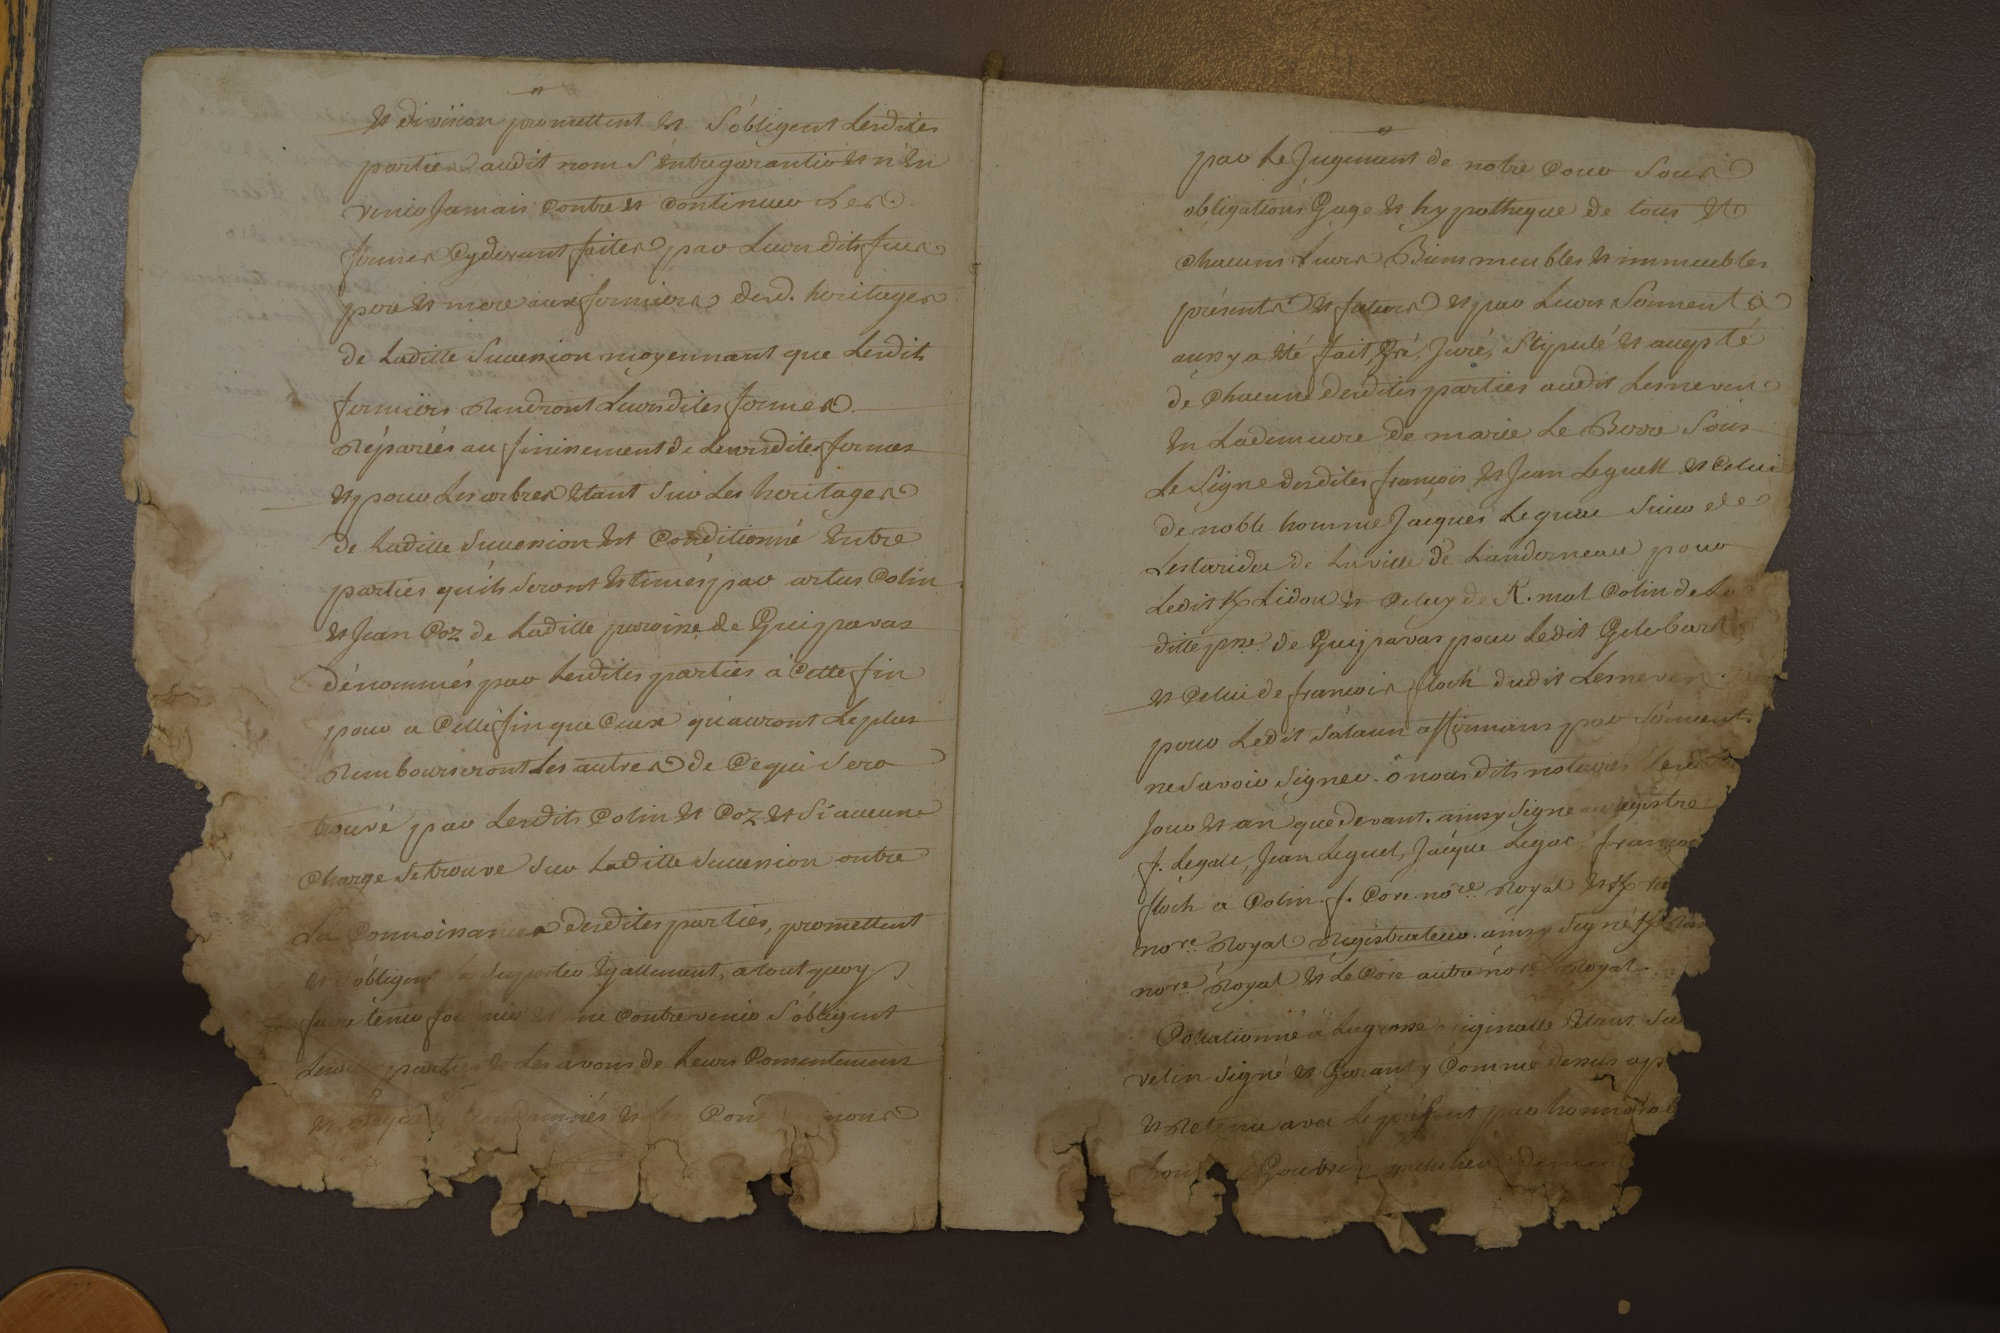 et division promettent et s'obligent Lesdites
parties audit nom s'entregarantir et n'en
venir Jamais contre et continuer Les
fermes cydevant faites par Leursdits feus
pere et mere aux fermiers desd. heritages
de Ladille Succession moyennant que Lesdits
fermiers Rendront Leursdites fermes
Réparées au finissement de Leursdites fermes
et pour Les arbres étant sur Les heritages
de Ladille Succession est Conditionné Entre
parties qu'ils seront estimés par artus Colin
et Jean Coz de Ladille paroisse de Guipavas
dénommés par Lesdites parties à Cette fin
pour a Celle fin que Ceux qu'auront Le plus
Rembourseront Les autres de Cequi sera
trouvé par Lesdits Colin et Coz et Si aucune
charge se trouve sur Ladille Succession outre
La Connoissance desdites parties, promettent
et s'obligent Les Suporter Egallement, a tout quoy
faire tenir fournir et ni Contrevenir s'obligent
Lesdites parties et Les avons de Leurs Consentement
et condamnés et Les Con nons
par Le Jugement de notre Cour Sous
obligations Gage et hypotheque de tous et
chacuns Leurs Biens meubles et immeubles
présents et futurs et par Leurs Serment
ainsy a été fait, Gré, Juré, Stipulé et accepté
de Chacune desdites parties audit Lesneven
En Lademeure de marie Le Borre Sous
Le Signe desdites françois et Jean Leguell et celui
de noble homme Jacques Legrac Sieur de
Lestaridec de La ville de Landerneau pour
Ledit Lidou et Celuy de R. mal Colin de La
ditte psse. de Guipavas pour Ledit Gelebart
et Celui de françois floch dudit Lesneven
pour Ledit Salaun affirmans par Serments
ne Savoir Signer. ô nous dits notaires Lesdits
Jour et an que devant. ainsy Signé au registre
f. Legall, Jean Leguel, Jacque Legac, françois
floch a Colin. f. Core nore. Royal et
nore. Royal Registrateur. ainsy Signé
nore. Royal et Le Core autre nore. Royal.
Collationné a La grosse originalle Etant Sur
velin Signé et Garanty Comme dessus
et Retenu avec Le présent par honnorable